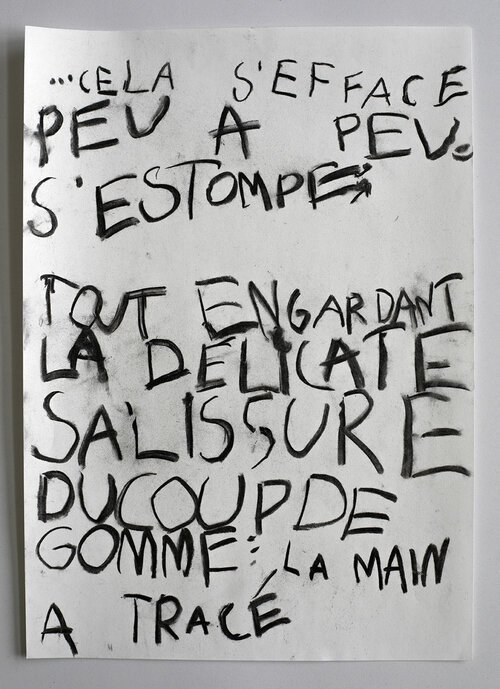 ...CELA S'EFFACE
PEU A PEU.
S'ESTOMPE;
TOUT EN GARDANT
LA DÉLICATE
SALISSURE
DU COUP DE
GOMME : LA MAIN
A TRACÉ